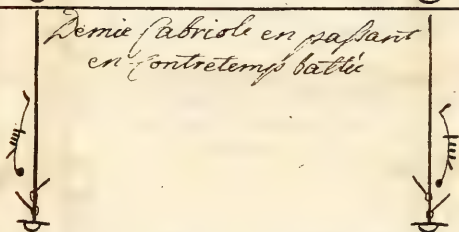 Demie Cabriole en passant
en Contretemps battu